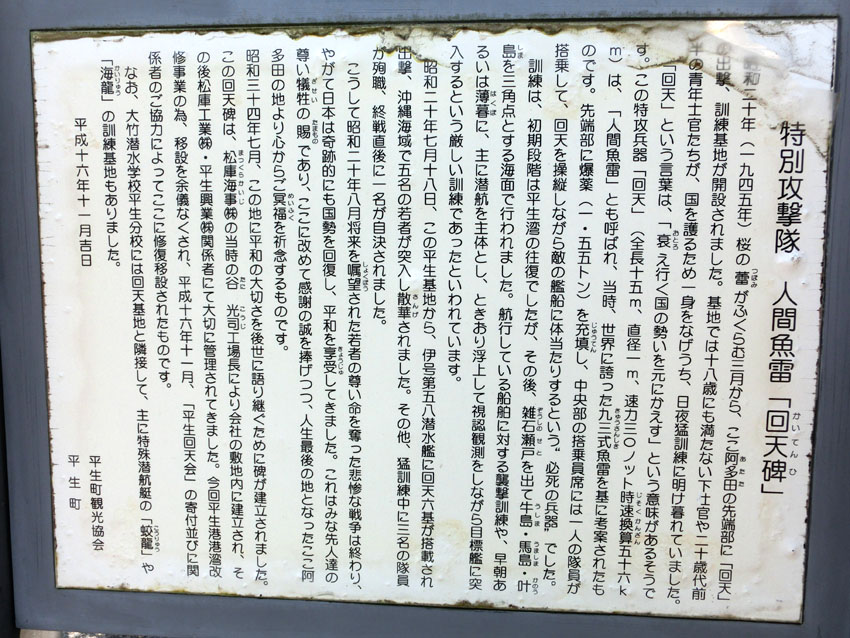 特別攻撃隊　人間魚雷「回天碑」
昭和二十年（一九四五年）桜の蕾がふくらむ三月から、ここ阿多田の先端部に「回天」
の出撃、訓練基地が開設されました。基地では十八歳にも満たない下士官や二十歳代前
半の青年士官たちが、国を護るため一身をなげうち、日夜猛訓練に明け暮れていました。
「回天」という言葉は、「衰え行く国の勢いを元にかえす」という意味があるそうで
す。この特攻兵器「回天」（全長十五ｍ、直径一ｍ、速力三〇ノット時速換算五十六ｋ
ｍ）は、「人間魚雷」とも呼ばれ、当時、世界に誇った九三式魚雷を基に考案されたも
のです。先端部に爆薬（一・五五トン）を充填し、中央部の搭乗員席には一人の隊員が
搭乗して、回天を操縦しながら敵の艦船に体当たりするという〝必死の兵器〟でした。
訓練は、初期段階は平生湾の往復でしたが、その後、雑石瀬戸を出て牛島・馬島・叶
島を三角点とする海面で行われました。航行している船舶に対する襲撃訓練や、早朝あ
るいは薄暮に、主に潜航を主体とし、ときおり浮上して視認観測をしながら目標艦に突
入するという厳しい訓練であったといわれています。
昭和二十年七月十八日、この平生基地から、伊号第五八潜水艦に回天六基が搭載され
出撃、沖縄海域で五名の若者が突入し散華されました。その他、猛訓練中に三名の隊員
が殉職、終戦直後に一名が自決されました。
こうして昭和二十年八月将来を嘱望された若者の尊い命を奪った悲惨な戦争は終わり、
やがて日本は奇跡的にも国勢を回復し、平和を享受してきました。これはみな先人達の
尊い犠牲の賜であり、ここに改めて感謝の誠を捧げつつ、人生最後の地となったここ阿
多田の地より心からご冥福を祈念するものです。
昭和三十四年七月、この地に平和の大切さを後世に語り継ぐために碑が建立されました。
この回天碑は、松庫海事㈱の当時の谷　光司工場長により会社の敷地内に建立され、そ
の後松庫工業㈱・平生興業㈱関係者にて大切に管理されてきました。今回平生港港湾改
修事業の為、移設を余儀なくされ、平成十六年十一月、「平生回天会」の寄付並びに関
係者のご協力によってここに修復移設されたものです。
なお、大竹潜水学校平生分校には回天基地と隣接して、主に特殊潜航艇の「蛟龍」や
「海龍」の訓練基地もありました。
平成十六年十一月吉日
平生町観光協会
平生町